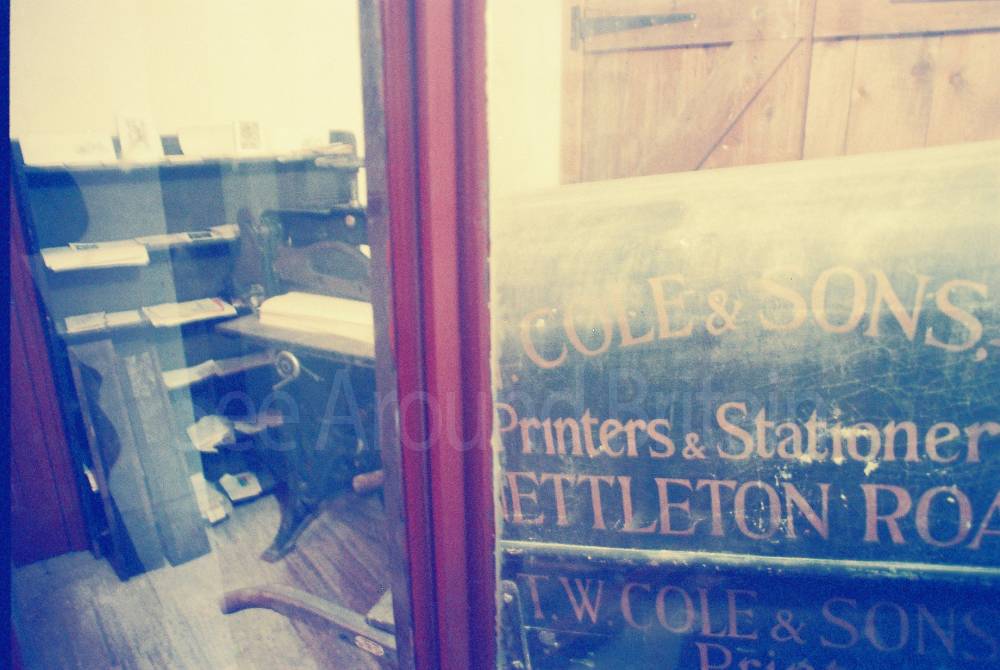 . COLE & SONS.
Printers & Stationer
ETTLETON ROA
T. W. COLE & SONS
Pri
See Around Britain